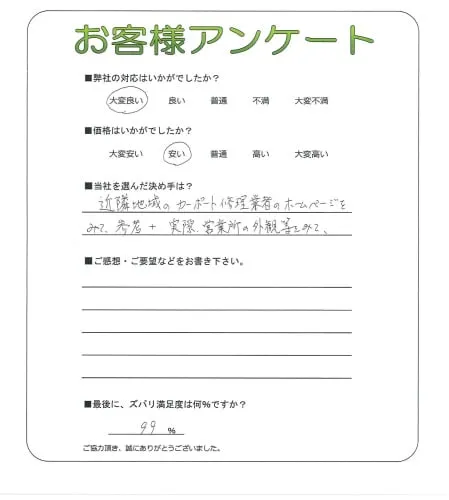 お客様アンケート
■弊社の対応はいかがでしたか？
大変良い 良い 普通 不満 大変不満
■価格はいかがでしたか？
大変安い 安い 普通 高い 大変高い
■当社を選んだ決め手は？
近隣地域のカーポート修理業者のホームページを
みて、参考 + 実際、営業所の外観等をみて、
■ご感想・ご要望などをお書き下さい。
■最後に、ズバリ満足度は何％ですか？
99 %
ご協力頂き、誠にありがとうございました。